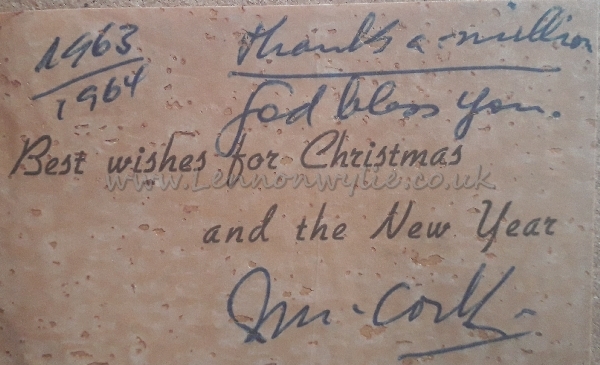 1963
1964
thanks a-million
God bless you.
Best wishes for Christmas
www.Lennonwylie.co.uk
and the New Year